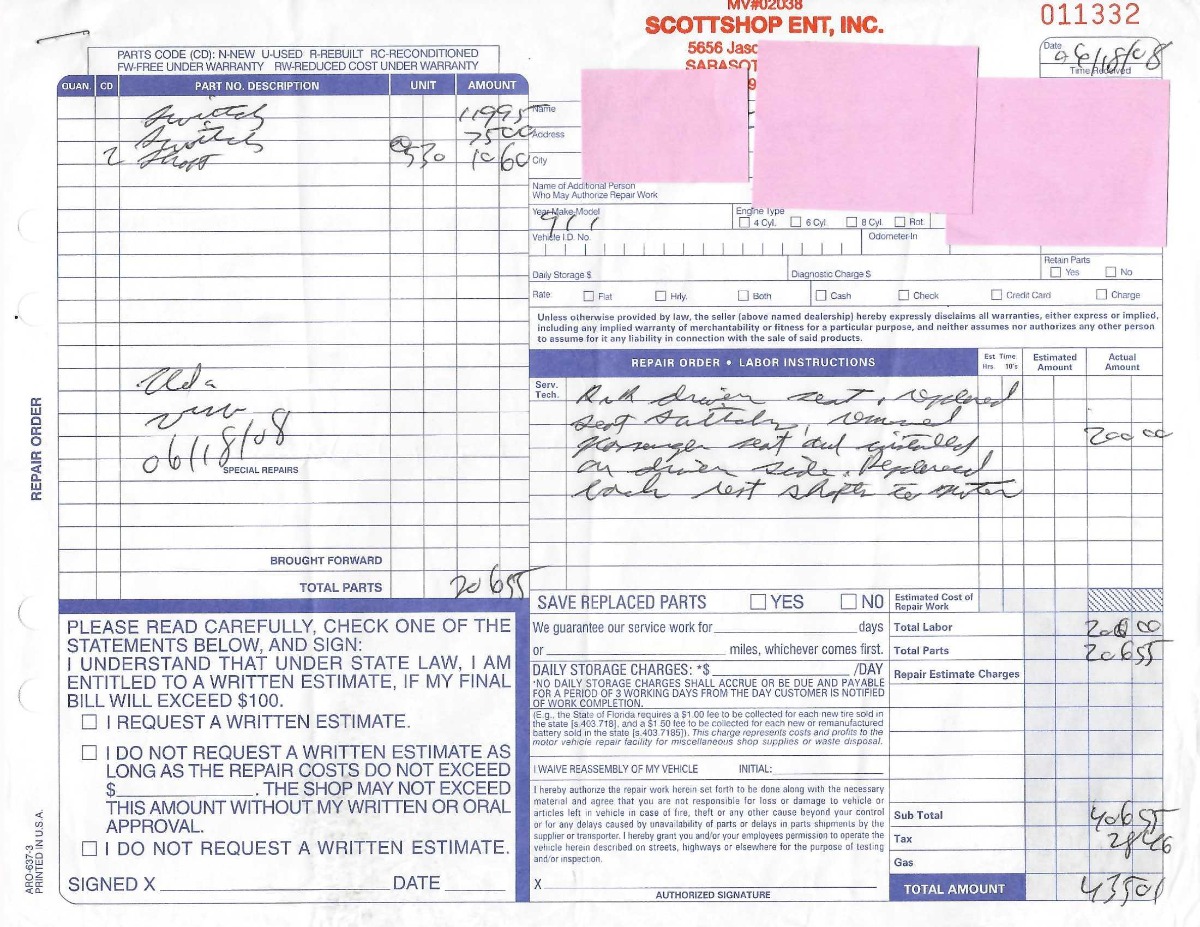 MV#02038
SCOTTSHOP ENT, INC.
5656
SARASOT
011332
Date 06/18/08
Time Received
PARTS CODE (CD): N-NEW U-USED R-REBUILT RC-RECONDITIONED
FW-FREE UNDER WARRANTY RW-REDUCED COST UNDER WARRANTY
QUAN. CD PART NO. DESCRIPTION UNIT AMOUNT
Switch 119 95
Switch 75 00
2 Shaft @ 5 30 10 60
Uda
visa
06/18/08
SPECIAL REPAIRS
BROUGHT FORWARD
TOTAL PARTS 206 55
Name
Address
City
Name of Additional Person
Who May Authorize Repair Work
Year-Make-Model 911
Engine Type
4 Cyl. 6 Cyl. 8 Cyl. Rot.
Vehicle I.D. No.
Odometer-In
Daily Storage $ Diagnostic Charge $
Retain Parts
Yes No
Rate: Flat Hrly. Both Cash Check Credit Card Charge
Unless otherwise provided by law, the seller (above named dealership) hereby expressly disclaims all warranties, either express or implied,
including any implied warranty of merchantability or fitness for a particular purpose, and neither assumes nor authorizes any other person
to assume for it any liability in connection with the sale of said products.
REPAIR ORDER • LABOR INSTRUCTIONS
Est Time
Hrs. 10's
Estimated
Amount
Actual
Amount
Serv.
Tech.
R&R driver seat, replaced
seat switch, removed
passenger seat and installed 200 00
on driver side. Replaced
back rest shafts to motor
SAVE REPLACED PARTS YES NO
Estimated Cost of
Repair Work
We guarantee our service work for days
or miles, whichever comes first.
Total Labor 200 00
Total Parts 206 55
DAILY STORAGE CHARGES: *$ /DAY
*NO DAILY STORAGE SHALL ACCRUE OR BE DUE AND PAYABLE
FOR A PERIOD OF 3 WORKING DAYS FROM THE DAY CUSTOMER IS NOTIFIED
OF WORK COMPLETION.
Repair Estimate Charges
(E.g., the State of Florida requires a $1.00 fee to be collected for each new tire sold in
the state [s.403.718], and a $1.50 fee to be collected for each new or remanufactured
battery sold in the state [s.403.7185]). This charge represents costs and profits to the
motor vehicle repair facility for miscellaneous shop supplies or waste disposal.
I WAIVE REASSEMBLY OF MY VEHICLE INITIAL:
I hereby authorize the repair work herein set forth to be done along with the necessary
material and agree that you are not responsible for loss or damage to vehicle or
articles left in vehicle in case of fire, theft or any other cause beyond your control
or for any delays caused by unavailability of parts or delays in parts shipments by the
supplier or transporter. I hereby grant you and/or your employees permission to operate the
vehicle herein described on streets, highways or elsewhere for the purpose of testing
and/or inspection.
X
AUTHORIZED SIGNATURE
Sub Total 406 55
Tax 28 46
Gas
TOTAL AMOUNT 435 01
PLEASE READ CAREFULLY, CHECK ONE OF THE
STATEMENTS BELOW, AND SIGN:
I UNDERSTAND THAT UNDER STATE LAW, I AM
ENTITLED TO A WRITTEN ESTIMATE, IF MY FINAL
BILL WILL EXCEED $100.
I REQUEST A WRITTEN ESTIMATE.
I DO NOT REQUEST A WRITTEN ESTIMATE AS
LONG AS THE REPAIR COSTS DO NOT EXCEED
$ . THE SHOP MAY NOT EXCEED
THIS AMOUNT WITHOUT MY WRITTEN OR ORAL
APPROVAL.
I DO NOT REQUEST A WRITTEN ESTIMATE.
SIGNED X DATE
REPAIR ORDER
ARO-637-3
PRINTED IN U.S.A.